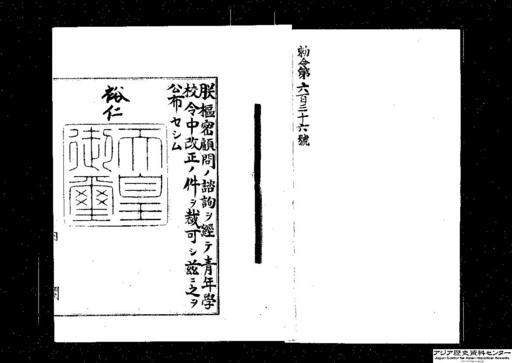 勅令第六百三十六號
朕樞密顧問ノ諮詢ヲ經テ青年學
校令中改正ノ件ヲ裁可シ茲ニ之ヲ
公布セシム
裕仁
天皇
御璽
アジア歴史資料センター
Japan Center for Asian Historical Records